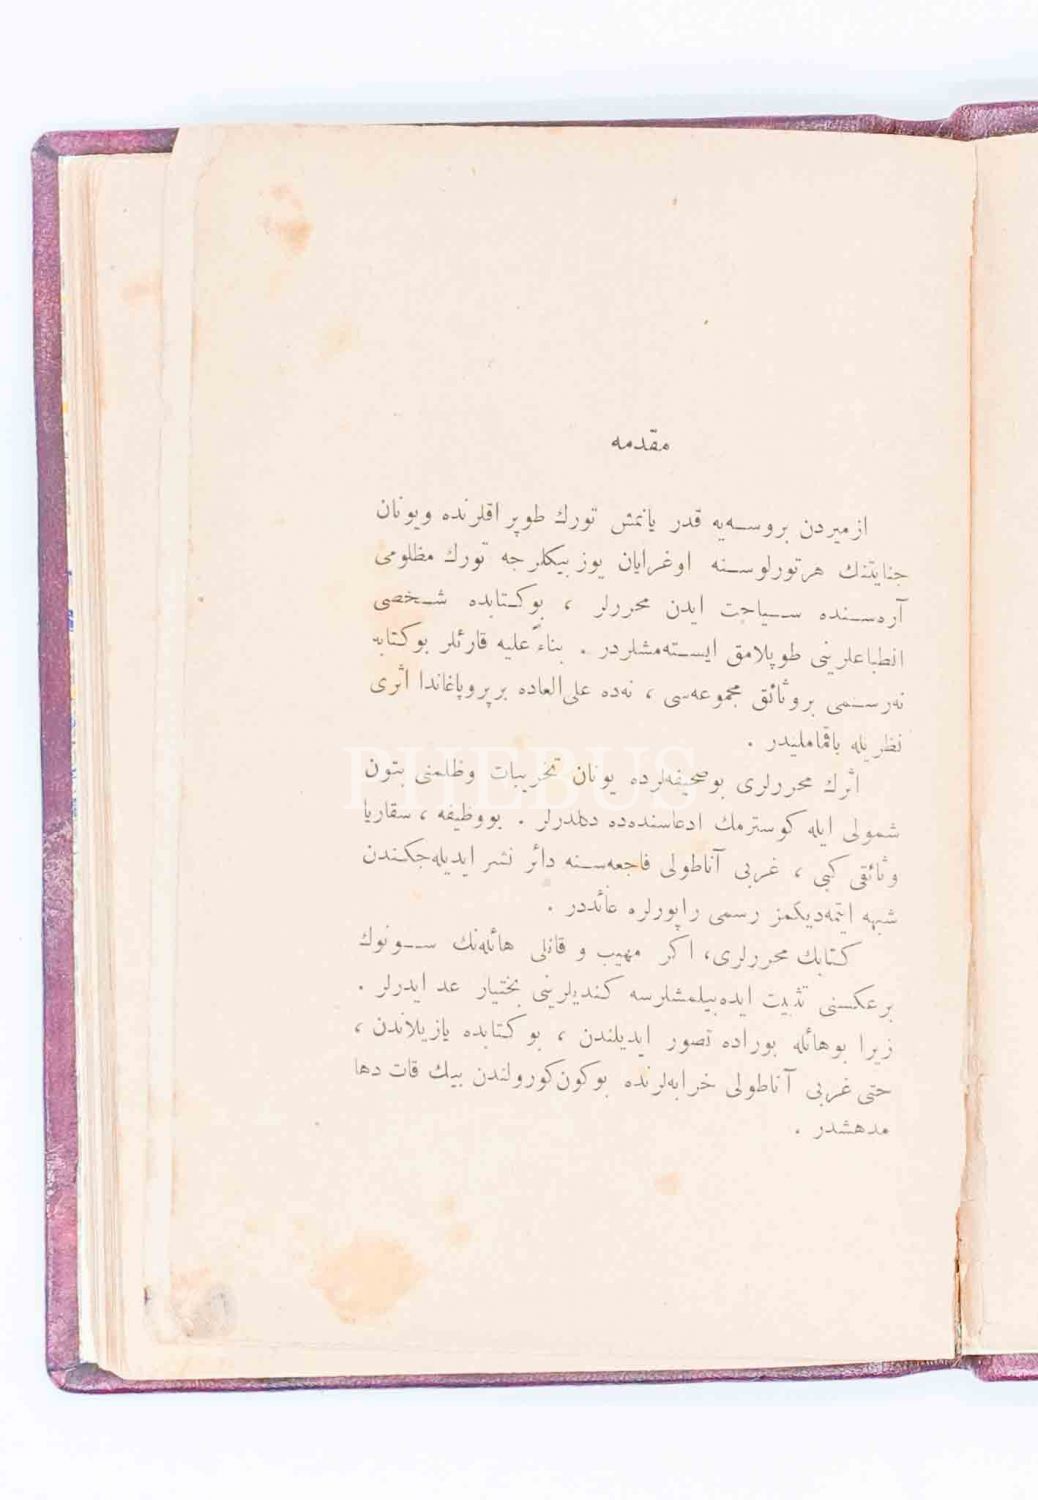 مقدمه
ازمیردن بروسـه‌یه قدر یانمش تورك طوپراقلرنده ویونان
جنایتنك هرتورلوسـنه اوغرایان یوز بیكلرجه تورك مظلومی
آره‌سـنده سـیاحت ایدن محررلر ، بوكتابده شـخصی
انطباعلرینی طوپلامق ایسـته‌مشلردر . بناءً علیه قارئلر بوكتابه
نه‌رسـمی بروثائق مجموعه‌سی ، نه‌ده علی‌العاده برپروپاغاندا اثری
نظریله باقمامليدر .
PHEBUS
اثرك محررلری بوصحیفه‌لرده یونان تخریبات وظلمنی بتون
شمولی ایله كوسترمك ادعاسنده‌ده دكلدرلر . بووظیفه ، سقاریا
وثائقی كبی ، غربی آناطولی فاجعه‌سـنه دائر نشر ایدیله‌جكندن
شبهه ایتمه‌دیكمز رسمی راپورلره عائددر .
كتابك محررلری، اكر مهیب و قانلی هائله‌نك سـونوك
برعكسنی تثبیت ایده‌بیلمشلرسه كندیلرینی بختیار عد ایدرلر .
زیرا بوهائله بوراده تصور ایدیلندن ، بو كتابده یازیلاندن ،
حتی غربی آناطولی خرابه‌لرنده بوكون‌كورولندن بیك قات دها
مدهشدر .